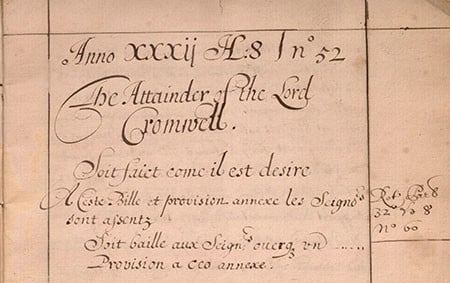 Anno XXXij H:8 / nº 52
The Attainder of the Lord
Cromwell.
Soit faict come il est desire
A Ceste Bille et provision annexe les Seignrs
sont assentz
Soit baille aux Seignrs ouerqz vn ......
Provision a ceo annexe.
Rot. Parl
32 H 8
Nº 60